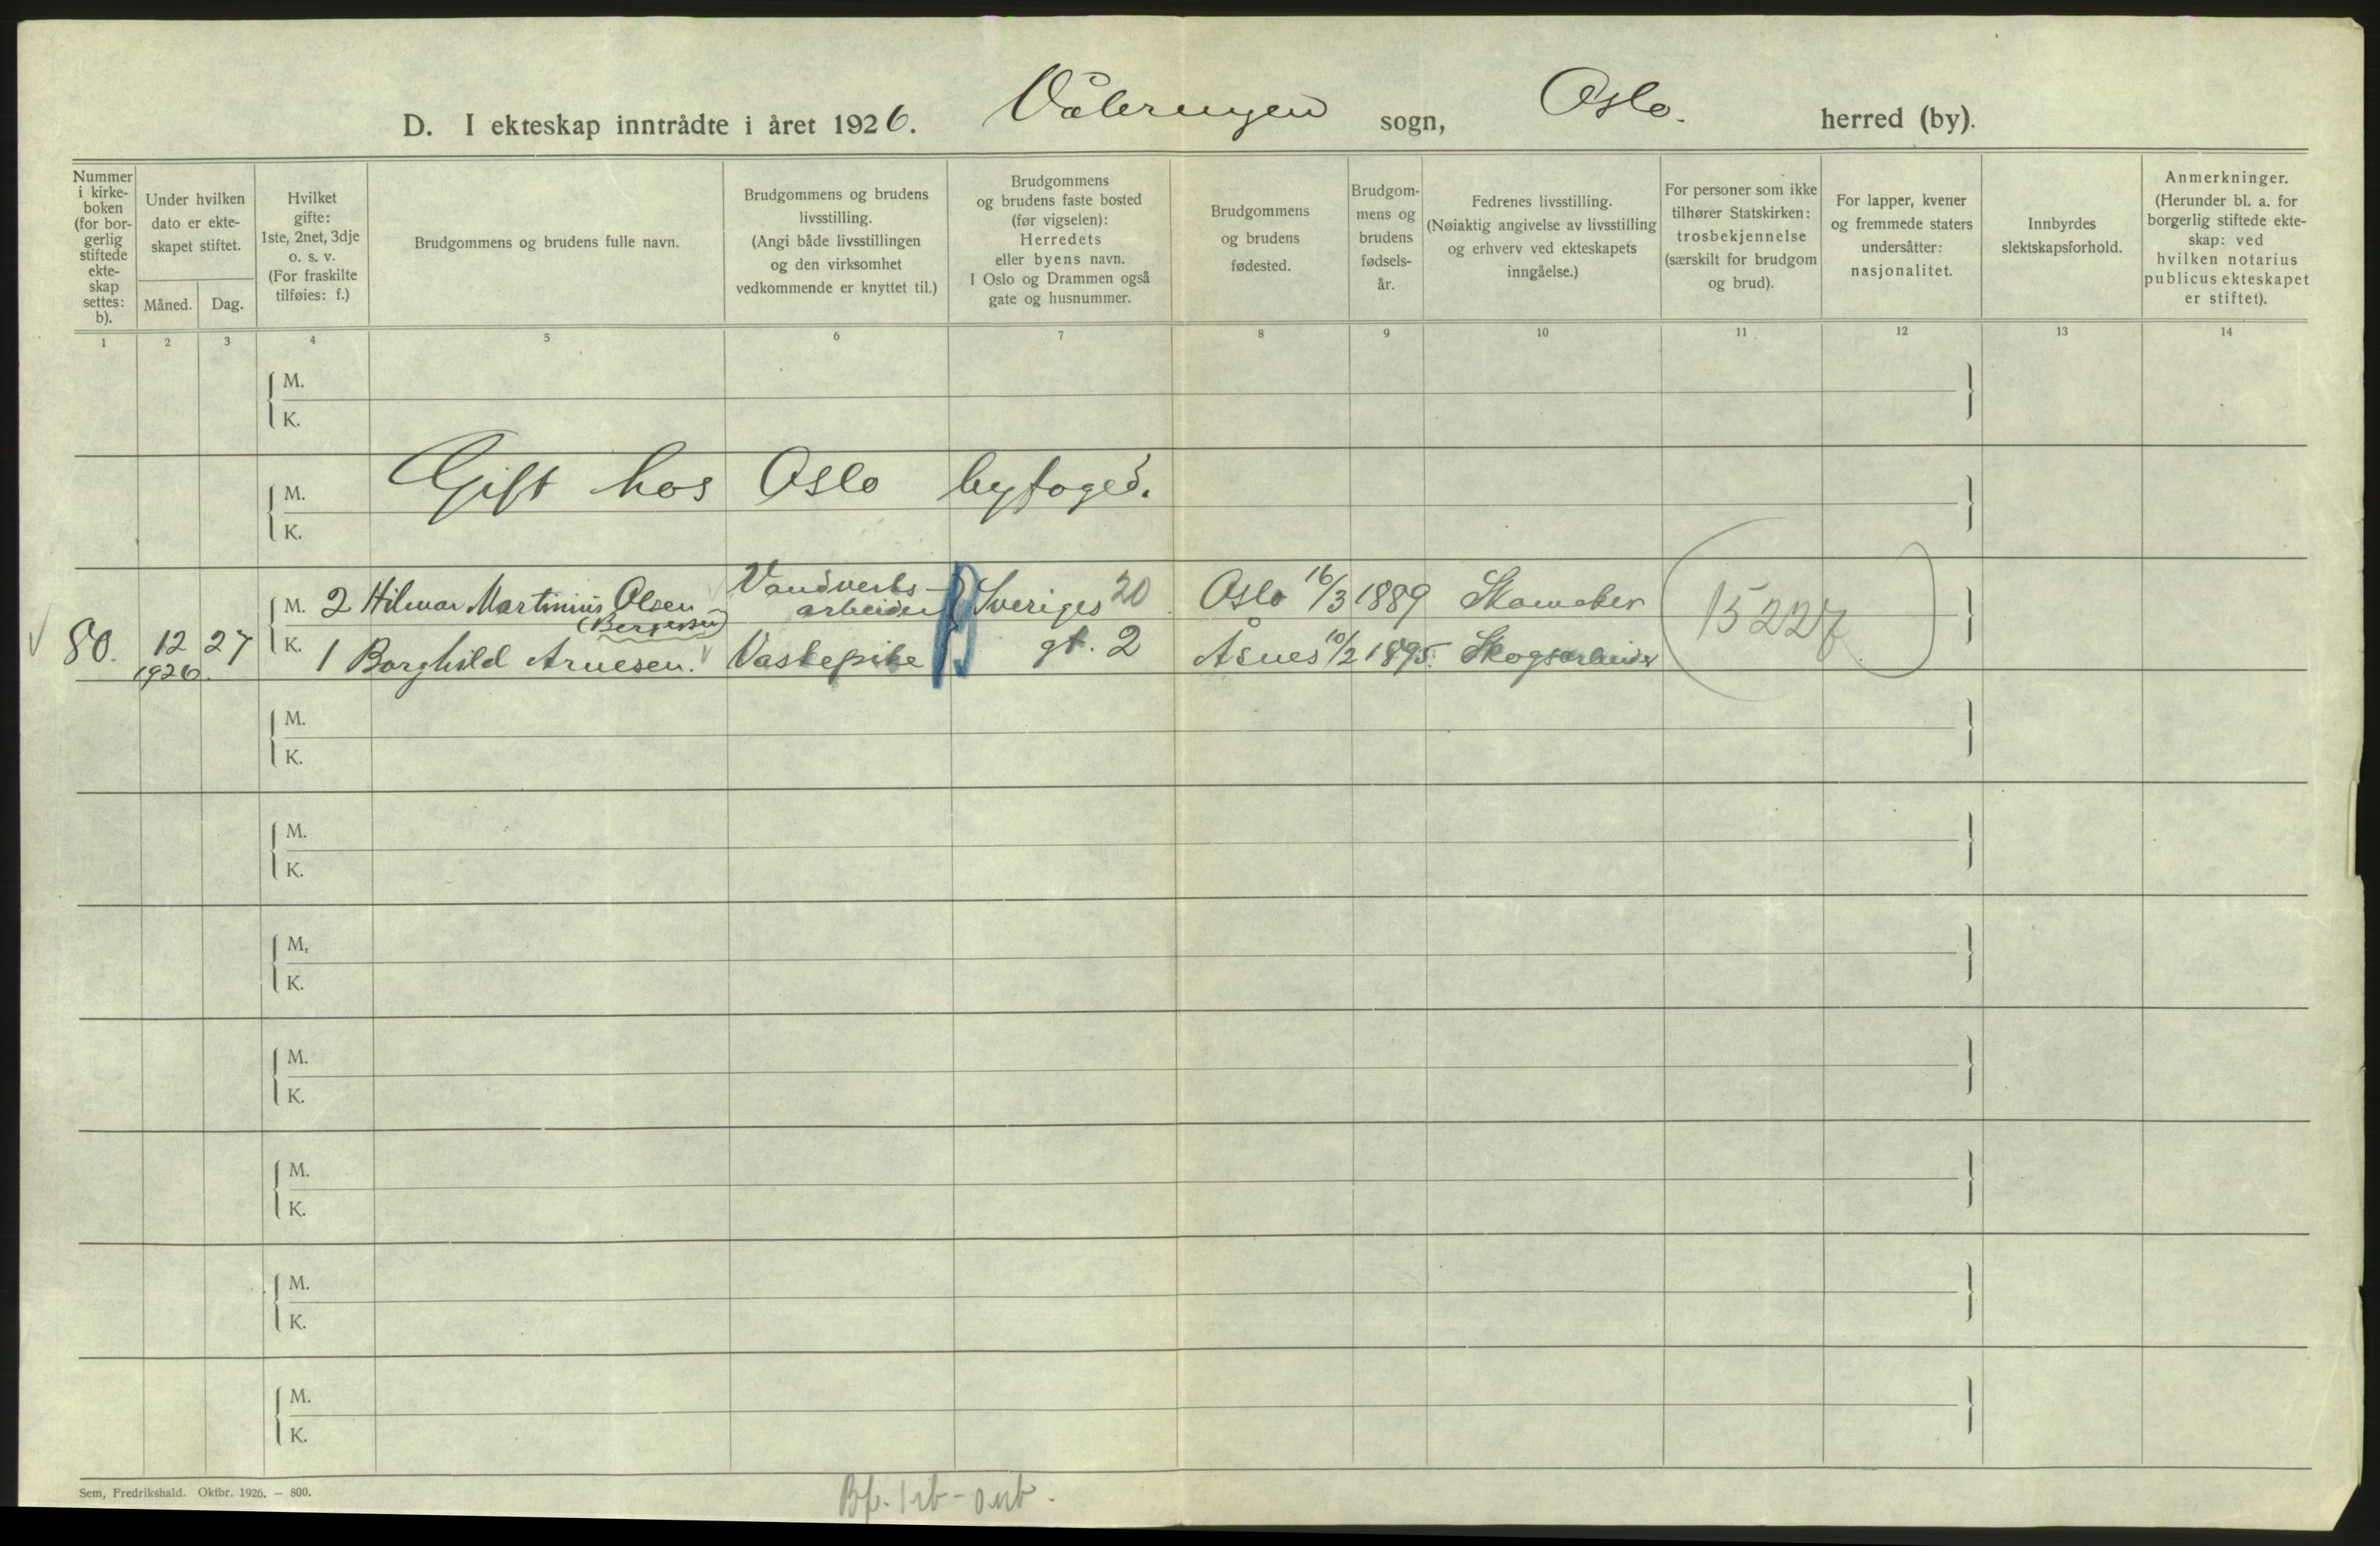 D. I ekteskap inntrådte i året 1926. Våleringen sogn, Oslo. herred (by).
Nummer i kirke-boken (for bor-gerlig stiftede ekte-skap settes: b).
Under hvilken dato er ekte-skapet stiftet.
Måned.
Dag.
Hvilket gifte: 1ste, 2net, 3dje o. s. v. (For fraskilte tilføies: f.)
Brudgommens og brudens fulle navn.
Brudgommens og brudens livsstilling. (Angi både livsstillingen og den virksomhet vedkommende er knyttet til.)
Brudgommens og brudens faste bosted (før vigselen): Herredets eller byens navn. I Oslo og Drammen også gate og husnummer.
Brudgommens og brudens fødested.
Brudgom-mens og brudens fødsels-år.
Fedrenes livsstilling. (Nøiaktig angivelse av livsstilling og erhverv ved ekteskapets inngåelse.)
For personer som ikke tilhører Statskirken: trosbekjennelse (særskilt for brudgom og brud).
For lapper, kvener og fremmede staters undersåtter: nasjonalitet.
Innbyrdes slektskapsforhold.
Anmerkninger. (Herunder bl. a. for borgerlig stiftede ekte-skap: ved hvilken notarius publicus ekteskapet er stiftet).
1 2 3 4 5 6 7 8 9 10 11 12 13 14
M.
K.
M. Gift hos Oslo byfoged.
K.
M. 2 Hilmar Martinius Olsen Vandverks-arbeider Sveriges 20 Oslo 16/3 1889 Skomaker
(Bergersen)
80. 12 27 K. 1 Borghild Arnesen. Vaskepike gt. 2 Åsnes 10/2 1895. Skogsarbeider
1926.
M.
K.
M.
K.
M.
K.
M.
K.
M.
K.
M.
K.
M.
K.
Sem, Fredrikshald. Oktbr. 1926. — 800.